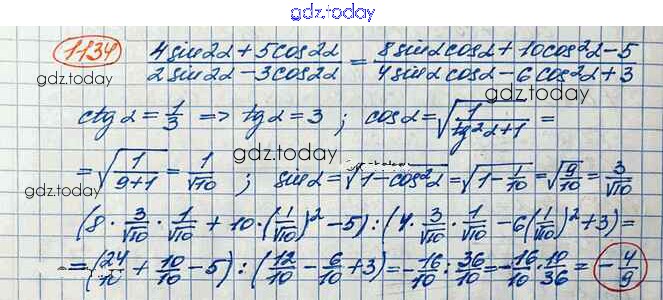 gdz.today
1134) (4sin2α + 5cos2α)/(2sin2α - 3cos2α) = (8sinα cosα + 10cos²α - 5)/(4sinα cosα - 6cos²α + 3)
gdz.today
gdz.today
ctgα = 1/3 => tgα = 3 ; cosα = √(1/(tg²α+1)) =
gdz.today
= √(1/(9+1)) = 1/√10 ; sinα = √(1-cos²α) = √(1 - 1/10) = √(9/10) = 3/√10
gdz.today
(8 · 3/√10 · 1/√10 + 10 · (1/√10)² - 5) : (4 · 3/√10 · 1/√10 - 6(1/√10)² + 3) =
= (24/10 + 10/10 - 5) : (12/10 - 6/10 + 3) = -16/10 : 36/10 = -16/10 · 10/36 = -4/9